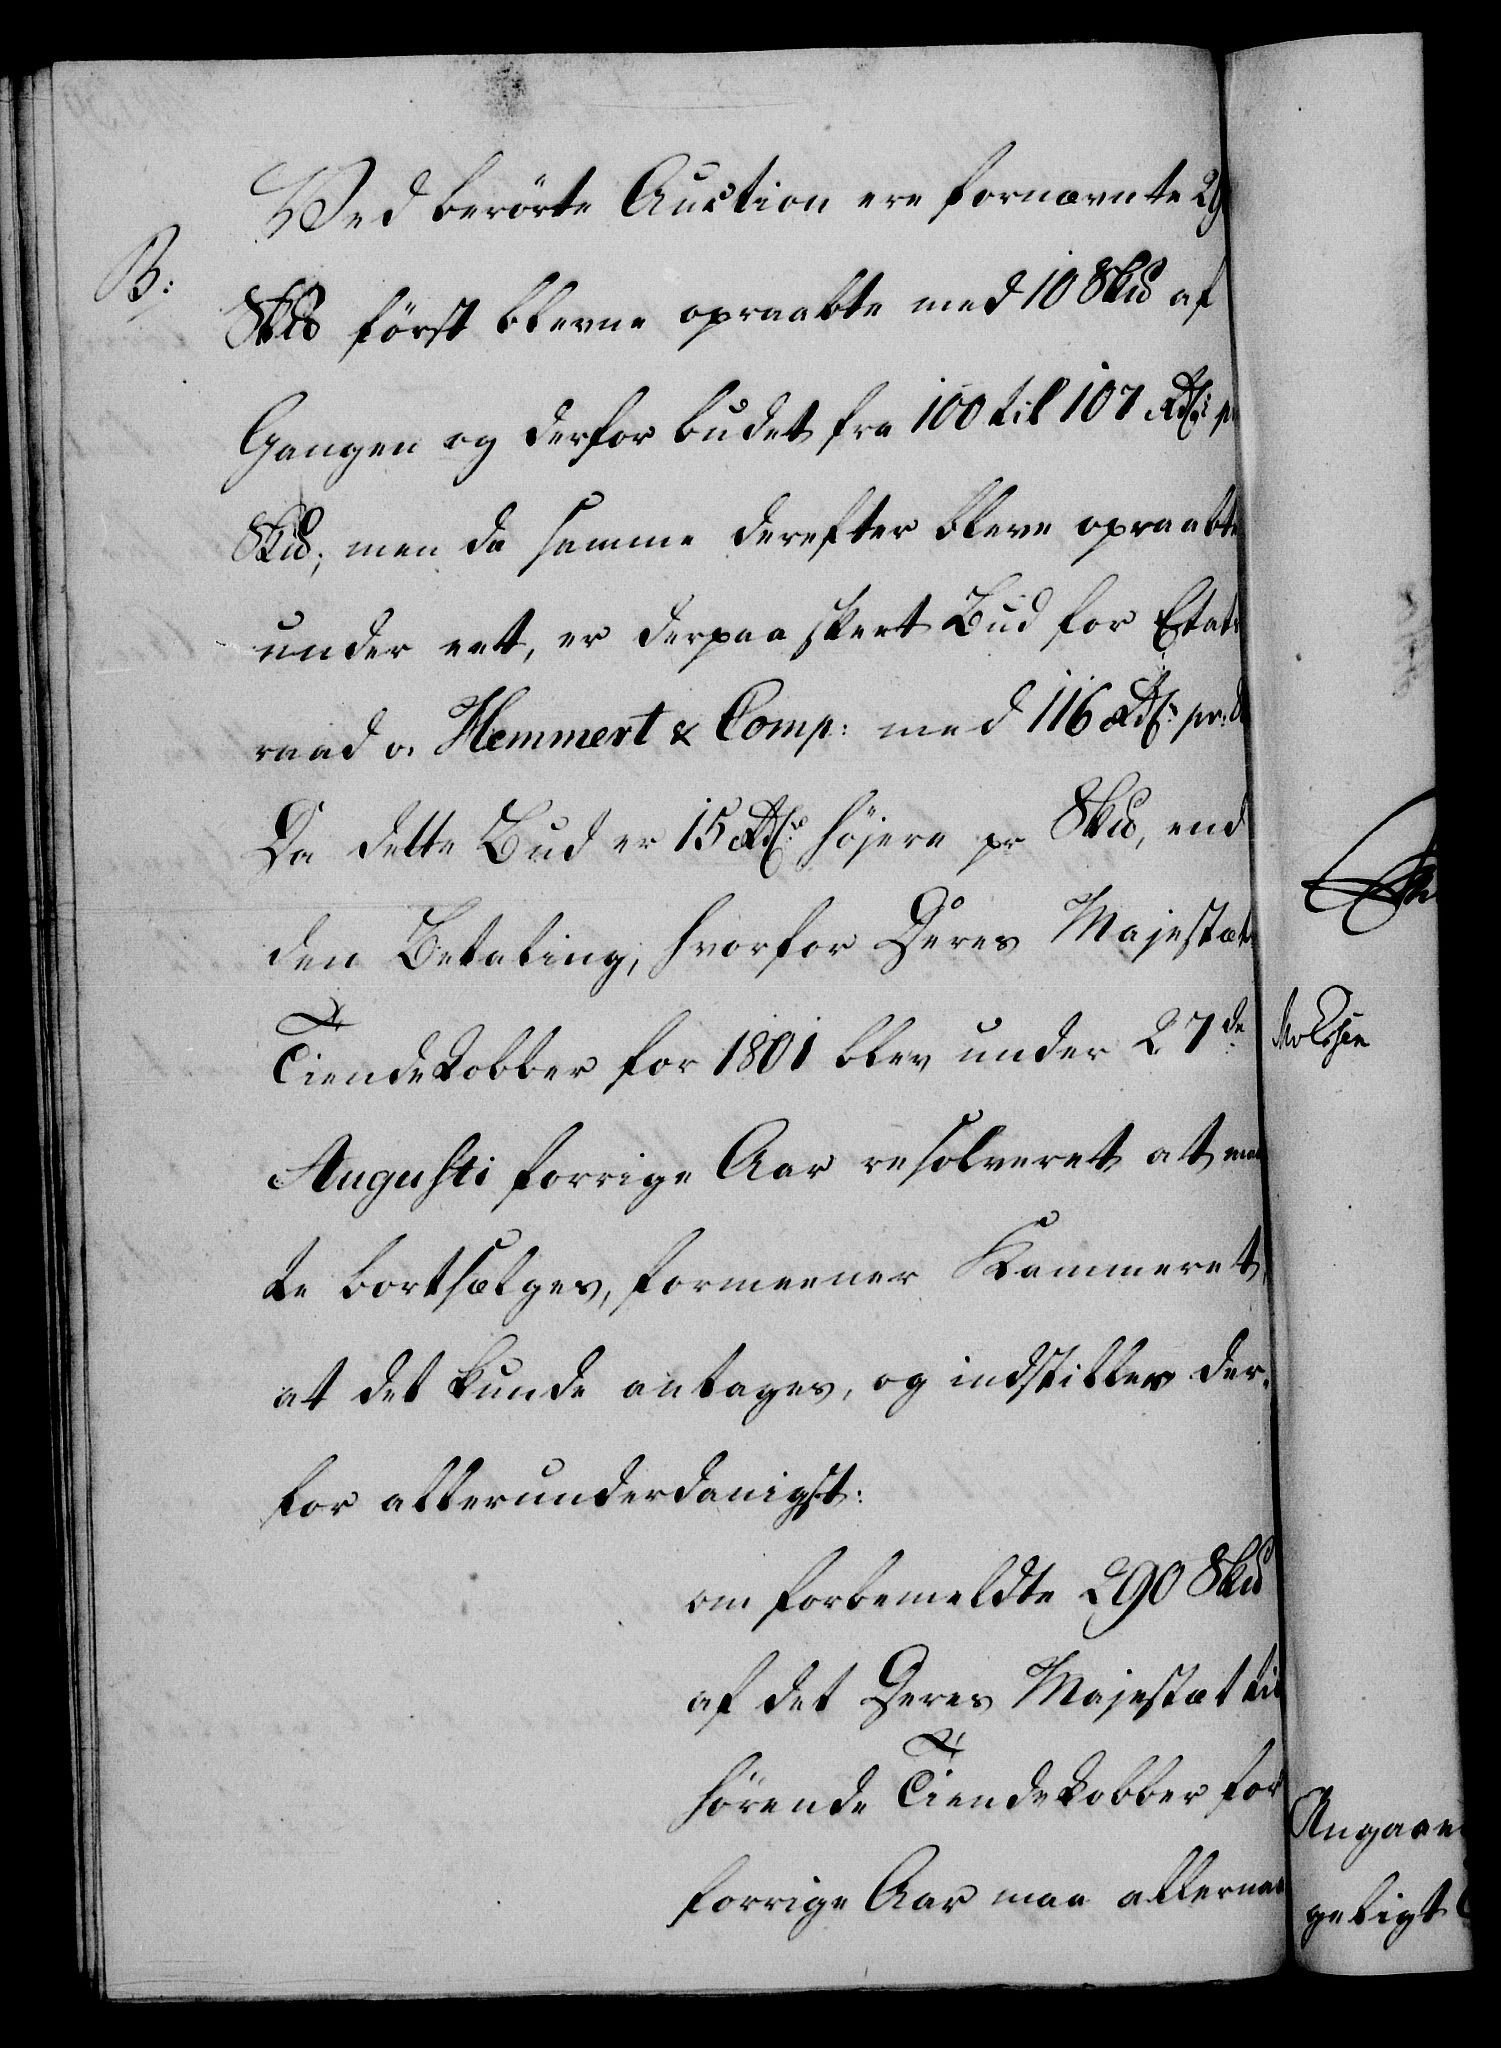 Ved berörte Auction ere fornævnte 29
B:
Sk℔ först blevne opraabte med 10 Sk℔ af
Gangen og derfor budet fra 100 til 107 Rdlr p
Sk℔; men da samme derefter bleve opraabte
under eet, er derpaa skeet Bud for Etats
raad v. Hemmert & Comp: med 116 Rdlr pr:
Da dette Bud er 15 Rdlr höjere pr Sk℔, end
den Betaling, hvorfor Deres Majestæts
Tiendekobber for 1801 blev under 27de
Augusti forrige Aar resolveret at maat
te bortsælges, formeener Kammeret,
at det kunde antages, og indstiller der-
for allerunderdanigst:
om forbemeldte 290 Sk℔
af det Deres Majestæt til
hörende Tiendekobber for
forrige Aar maa allernaa
Angaaen
geligt